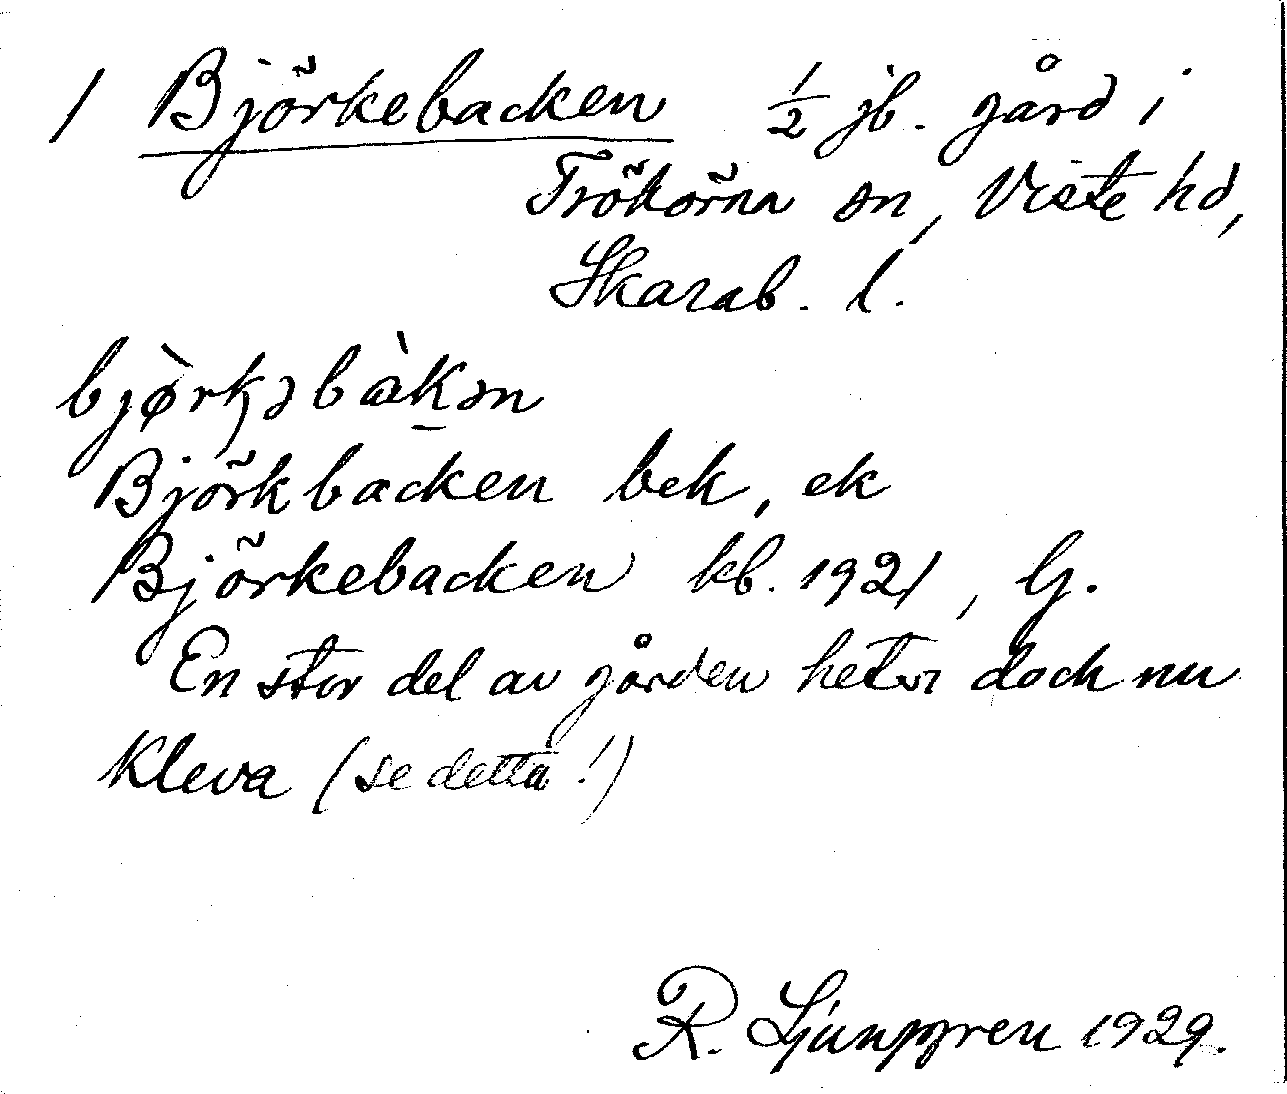 1 Björkebacken ½ jb. gård i
Trökörna sn, Viste hd,
Skarab. l.
bjø̀rkəbàkən
Björkbacken bek, ek
Björkebacken kb. 1921, G.
En stor del av gården heter dock nu
Kleva (se detta!)
R. Ljunggren 1929.